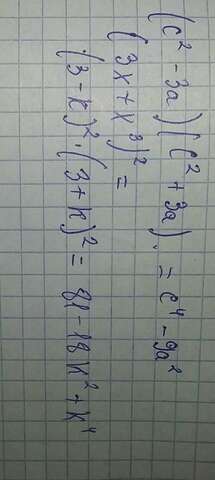 (c² - 3a)(c² + 3a). = c⁴ - 9a²
(3x + x³)² =
(3 - k)² · (3 + k)² = 81 - 18k² + k⁴